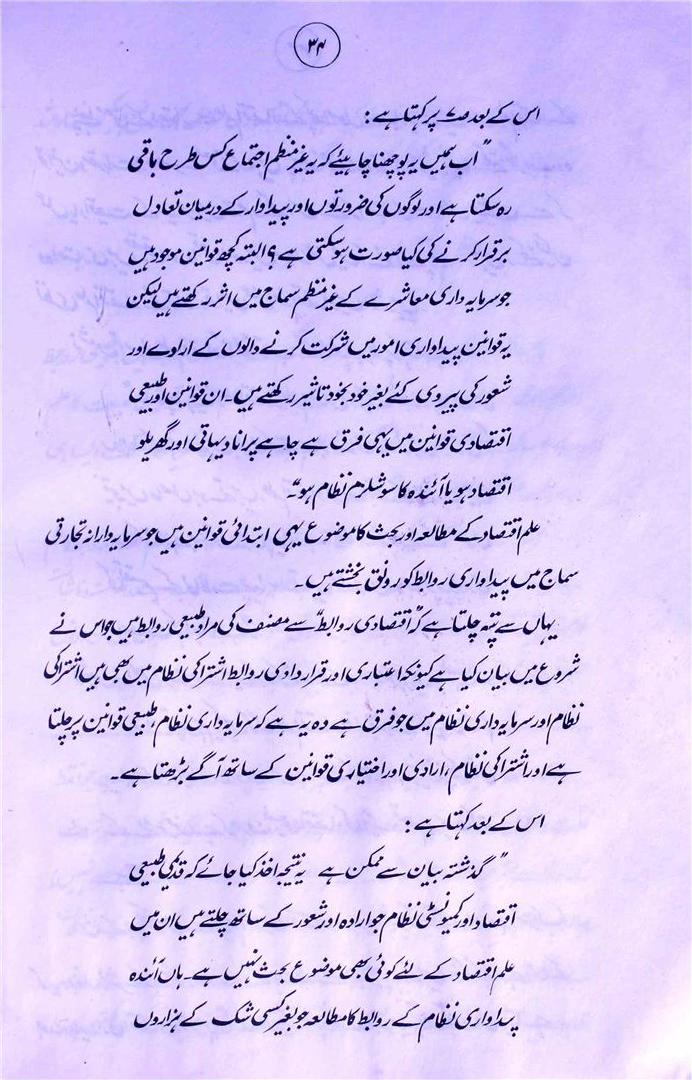 ۳۴
اس کے بعد ص۷ پر کہتا ہے :
"اب ہمیں یہ پوچھنا چاہیئے کہ یہ غیر منظم اجتماع کس طرح باقی
رہ سکتا ہے اور لوگوں کی ضرورتوں اور پیداوار کے درمیان تعادل
برقرار کرنے کی کیا صورت ہو سکتی ہے ؟ البتہ کچھ قوانین موجود ہیں
جو سرمایہ داری معاشرے کے غیر منظم سماج میں اثر رکھتے ہیں لیکن
یہ قوانین پیداواری امور میں شرکت کرنے والوں کے ارادے اور
شعور کی پیروی کئے بغیر خود بخود تاثیر رکھتے ہیں۔ ان قوانین اور طبیعی
اقتصادی قوانین میں یہی فرق ہے چاہے پرانا دیہاتی اور گھریلو
اقتصاد ہو یا آئندہ کا سوشلزم نظام ہو"۔
علم اقتصاد کے مطالعہ اور بحث کا موضوع یہی ابتدائی قوانین ہیں جو سرمایہ دارانہ تجارتی
سماج میں پیداواری روابط کو رونق بخشتے ہیں۔
یہاں سے پتہ چلتا ہے کہ "اقتصادی روابط" سے مصنف کی مراد طبیعی روابط ہیں جو اس نے
شروع میں بیان کیا ہے کیونکہ اعتباری اور قراردادی روابط اشتراکی نظام میں بھی ہیں اشتراکی
نظام اور سرمایہ داری نظام میں جو فرق ہے وہ یہ ہے کہ سرمایہ داری نظام، طبیعی قوانین پر چلتا
ہے اور اشتراکی نظام، ارادی اور اختیاری قوانین کے ساتھ آگے بڑھتا ہے۔
اس کے بعد کہتا ہے :
"گذشتہ بیان سے ممکن ہے یہ نتیجہ اخذ کیا جائے کہ قدیمی طبیعی
اقتصاد اور کمیونسٹی نظام جو ارادہ اور شعور کے ساتھ چلتے ہیں ان میں
علم اقتصاد کے لئے کوئی بھی موضوع بحث نہیں ہے۔ ہاں آئندہ
پیداواری نظام کے روابط کا مطالعہ جو بغیر کسی شک کے ہزاروں